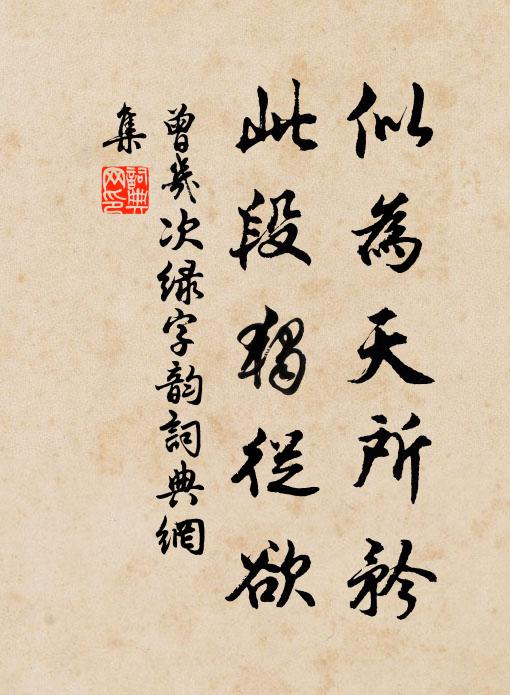 似為天所矜
此段獨從欲
曾幾次綠字韵詞典網
集
詞典网印